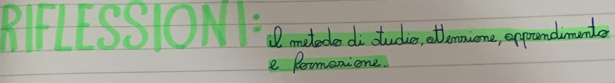 RIFLESSIONI: il metodo di studio, attenzione, apprendimento
e formazione.